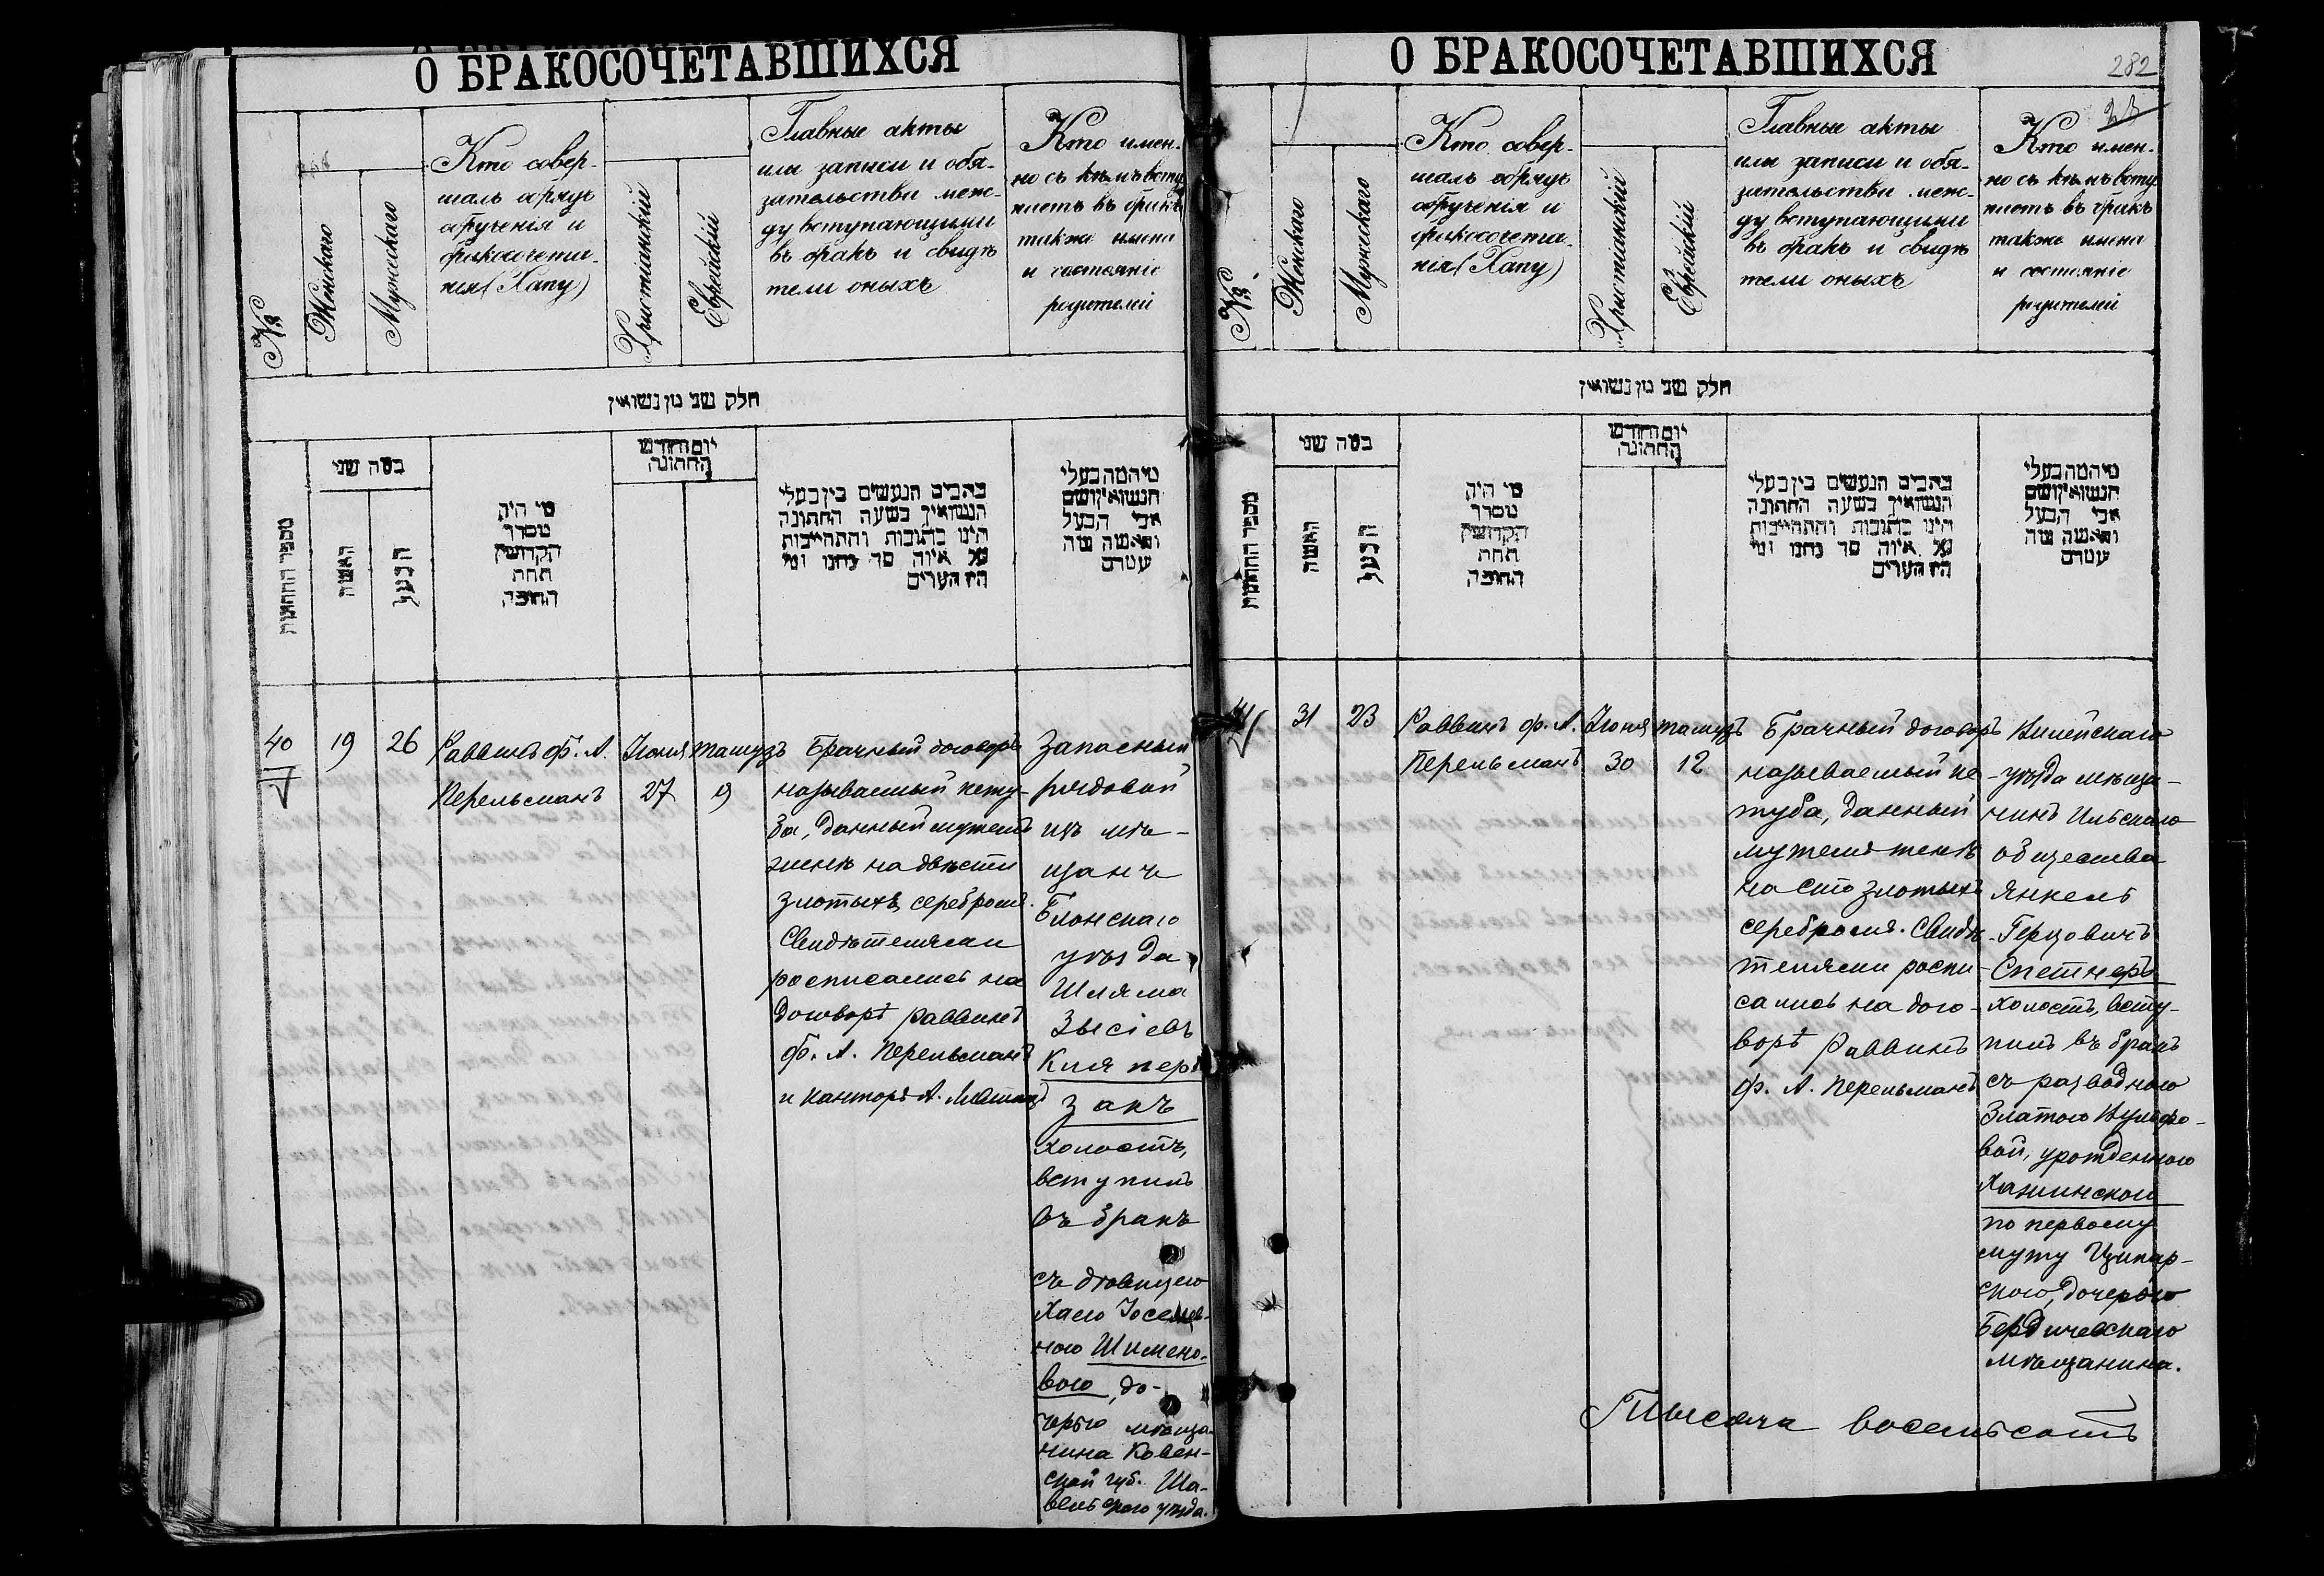 О БРАКОСОЧЕТАВШИХСЯ
№
Женскаго
Мужескаго
Кто совер-
шалъ обрядъ
обрученія и
бракосочета-
нія (Хапу)
Христіанскій
Еврейскій
Главные акты
или записи и обя-
зательства меж-
ду вступающими
въ бракъ и свидѣ
тели оныхъ
Кто имен-
но съ кѣмъ всту
паетъ въ бракъ
также имена
и состояніе
родителей
חלק שני מן נשואין
מספר החתונות
כמה שני
האשה
הבעל
מי היה
מסדר
הקדושין
תחת
החופה
יום וחודש
החתונה
כתבים הנעשים בין בעלי
הנשואין בשעה החתונה
היינו כתובות והתחייבות
על איזה סך נתנו ומי
היו הערים
מי המה בעלי
הנשואין ושם
אבי הבעל
והאשה ומה
עטרם
40
19
26
Раввинъ Ф. А.
Перельманъ
Іюня
27
Тамузъ
9
Брачный договоръ
называемый кету-
ба, данный мужемъ
женѣ на двѣсти
злотыхъ серебромъ.
Свидѣтелями
росписались на
договорѣ раввинъ
Ф. А. Перельманъ
и канторъ А.
Запасный
рядовой
изъ мѣ-
щанъ
Блонскаго
уѣзда,
Шляма
Зысіевъ
Кляпер
закъ
холостъ,
вступилъ
въ бракъ
съ дѣвицею
Хаею
ною Шимено-
вою, до-
черью мѣща-
нина Ковен-
ской губ. Ша-
вельскаго уѣзда.
О БРАКОСОЧЕТАВШИХСЯ
282
23
№
Женскаго
Мужескаго
Кто совер-
шалъ обрядъ
обрученія и
бракосочета-
нія (Хапу)
Христіанскій
Еврейскій
Главные акты
или записи и обя-
зательства меж-
ду вступающими
въ бракъ и свидѣ
тели оныхъ
Кто имен-
но съ кѣмъ всту
паетъ въ бракъ
также имена
и состояніе
родителей
חלק שני מן נשואין
מספר החתונות
כמה שני
האשה
הבעל
מי היה
מסדר
הקדושין
תחת
החופה
יום וחודש
החתונה
כתבים הנעשים בין בעלי
הנשואין בשעה החתונה
היינו כתובות והתחייבות
על איזה סך נתנו ומי
היו הערים
מי המה בעלי
הנשואין ושם
אבי הבעל
והאשה ומה
עטרם
41
31
23
Раввинъ Ф. А.
Перельманъ
Іюня
30
Тамузъ
12
Брачный договоръ
называемый ке-
туба, данный
мужемъ женѣ
на сто злотыхъ
серебромъ. Свидѣ-
телями роспи-
сались на дого-
ворѣ Раввинъ
Ф. А. Перельманъ
Вилейскаго
уѣзда мѣща-
нинъ Ильскаго
общества
Янкель
Герцовичъ
Спетнеръ
холостъ, всту-
пилъ въ бракъ
съ разводною
Златою Вульфо-
вой, урожденною
Хажинскою
по первому
мужу Ципар-
скою, дочерью
Бердичевскаго
мѣщанина.
Тысяча восемьсотъ